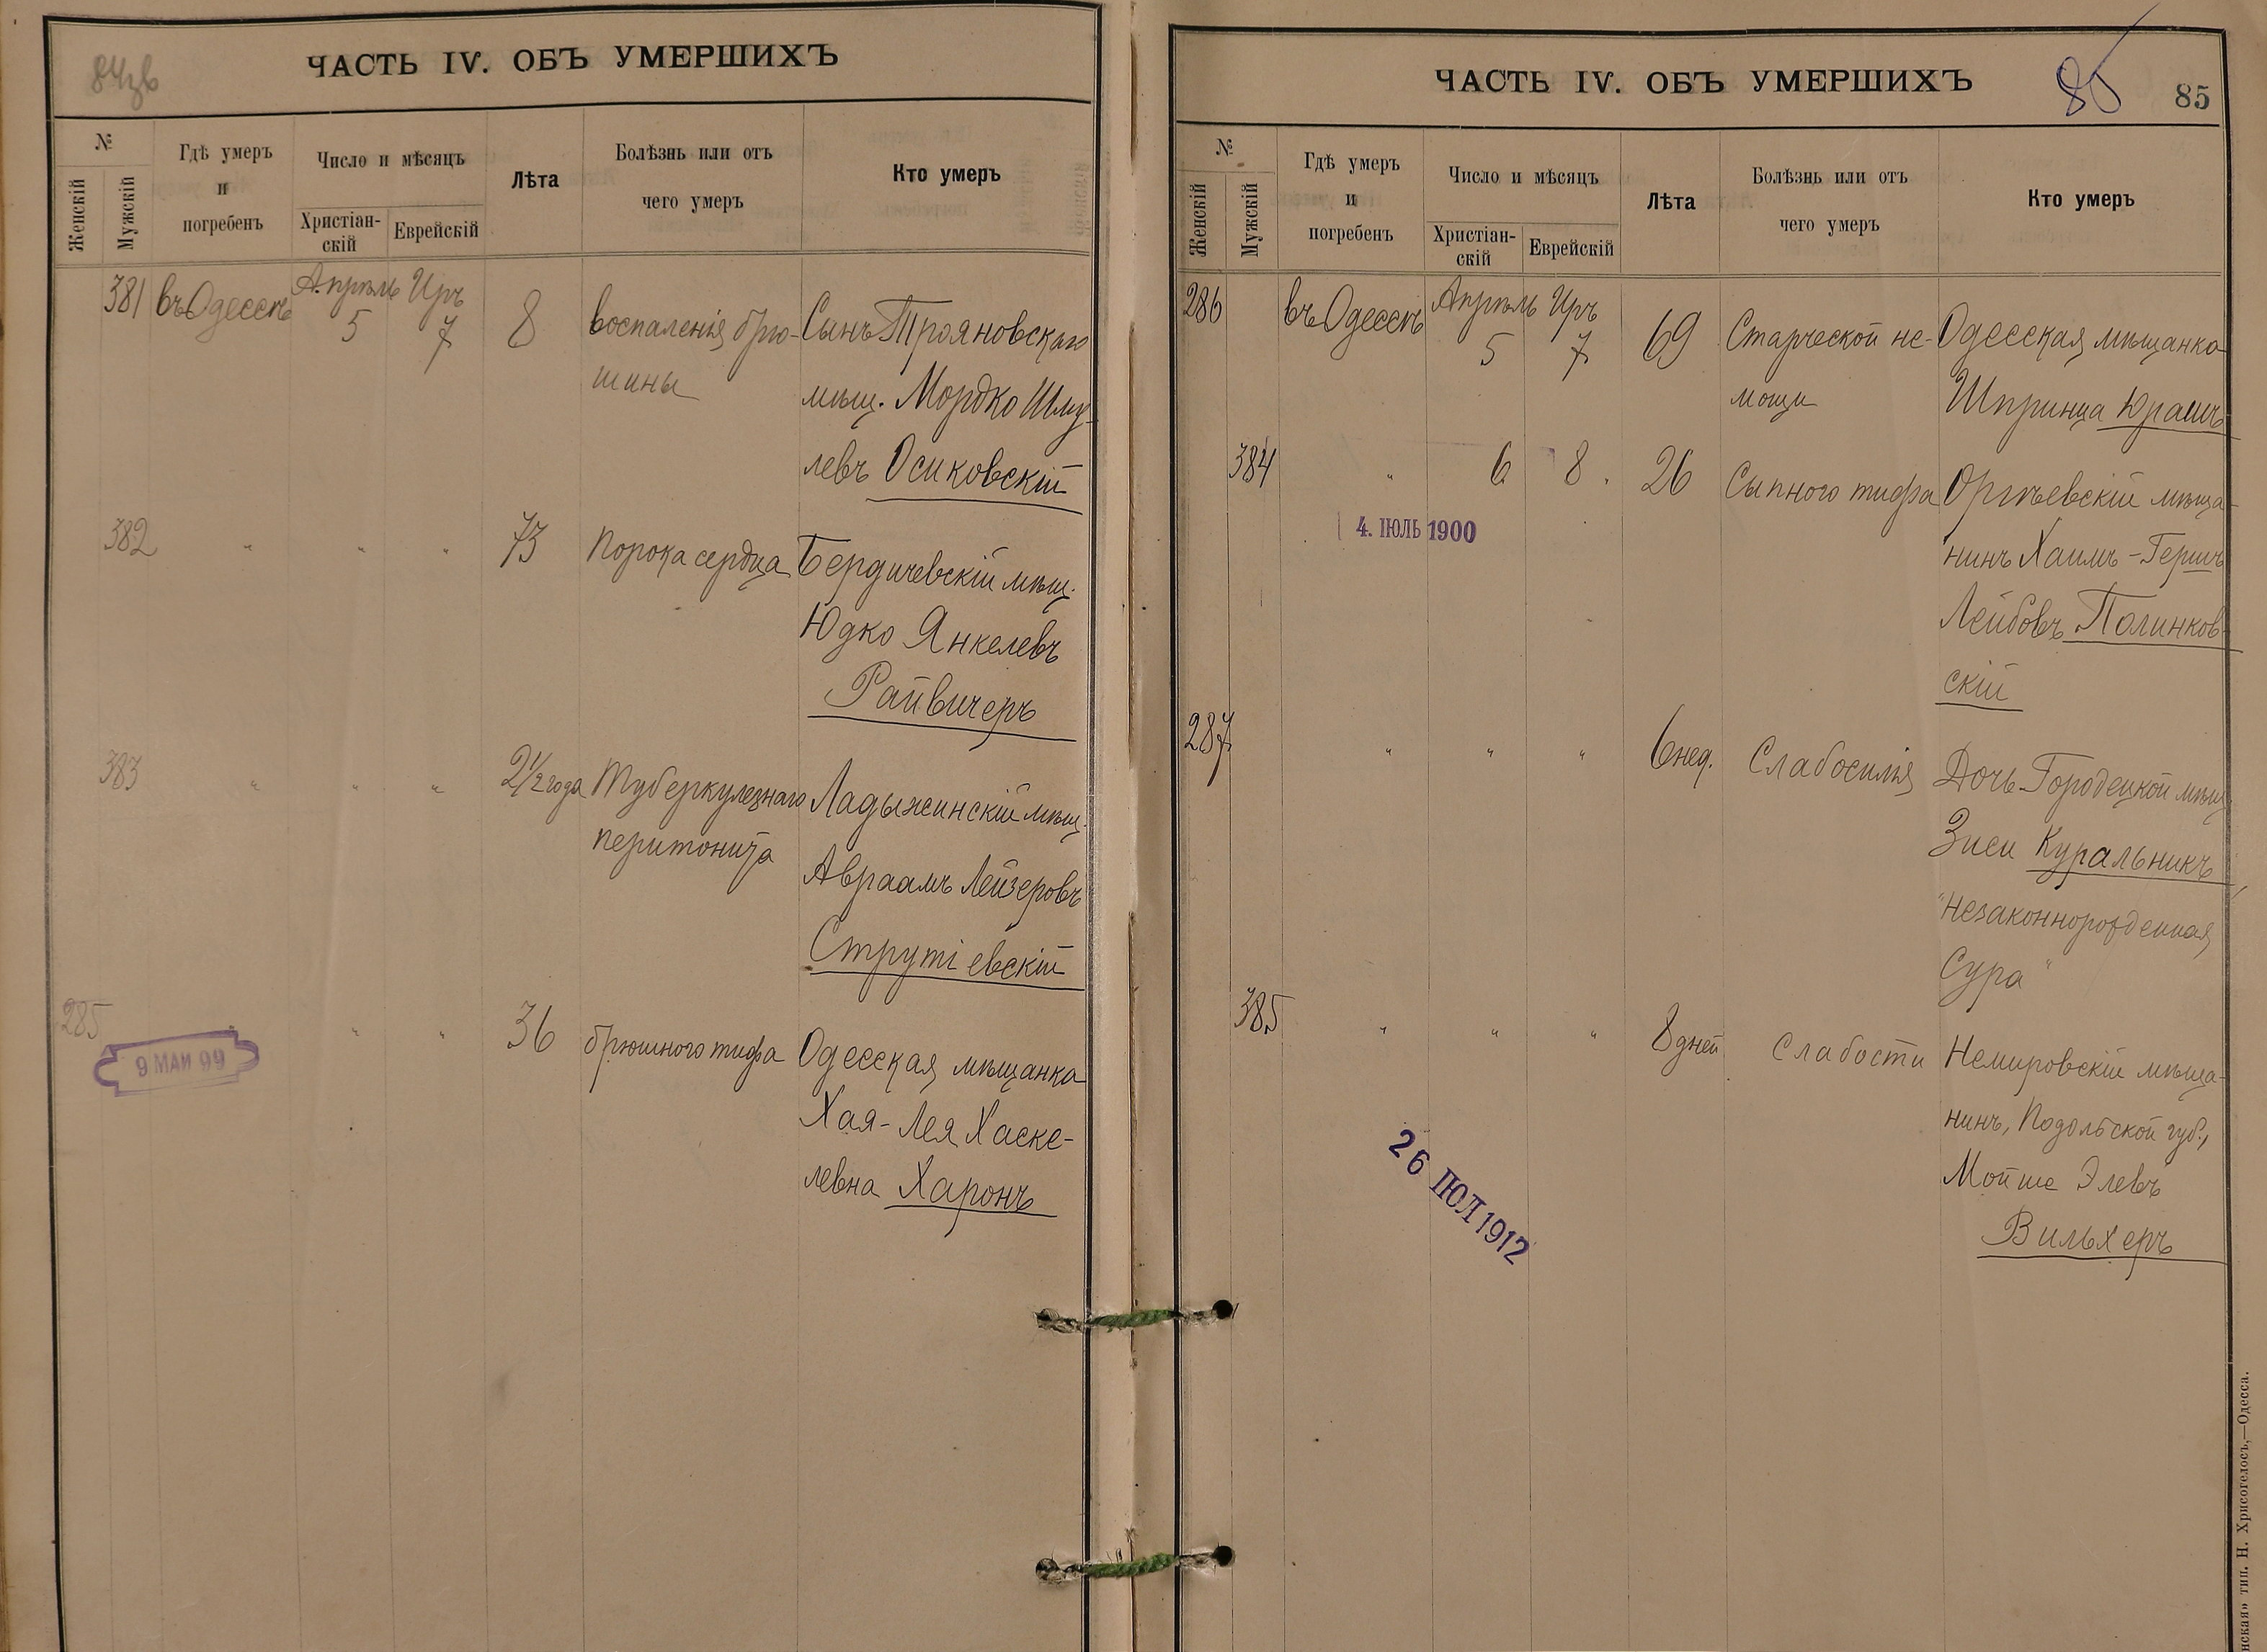 84об
ЧАСТЬ IV. ОБЪ УМЕРШИХЪ
№
Женскій
Мужскій
Гдѣ умеръ
и
погребенъ
Число и мѣсяцъ
Христіан-
скій
Еврейскій
Лѣта
Болѣзнь или отъ
чего умеръ
Кто умеръ
381 въ Одессѣ Апрѣль 5 Иръ 7 8 воспаленія брю- Сынъ Трояновскаго
шины мѣщ. Мордко Шму-
левъ Осиковскій
382 " " " 73 Порока сердца Бердичевскій мѣщ.
Юдко Янкелевъ
Райвичеръ
383 " " " 2 1/2 года Туберкулезнаго Ладыжинскій мѣщ.
перитонита Авраамъ Лейзеровъ
Струтіевскій
285 " " " 36 брюшного тифа Одесская мѣщанка
9 МАИ 99
Хая-Лея Хаске-
левна Харонъ
ЧАСТЬ IV. ОБЪ УМЕРШИХЪ
85
85
№
Женскій
Мужскій
Гдѣ умеръ
и
погребенъ
Число и мѣсяцъ
Христіан-
скій
Еврейскій
Лѣта
Болѣзнь или отъ
чего умеръ
Кто умеръ
286 въ Одессѣ Апрѣль 5 Иръ 7 69 Старческой не- Одесская мѣщанка
мощи Шпринца Юрашъ
384 " 6 8. 26 Сыпного тифа Оргѣевскій мѣща-
4. ІЮЛЬ 1900
нинъ Хаимъ-Гершъ
Лейбовъ Полинков-
скій
287 " " " 6 нед. Слабосилія Дочь Городецкой мѣщ.
Зиси Куральникъ,
"незаконнорожденная
Сура"
385 " " " 8 дней Слабости Немировскій мѣща-
нинъ, Подольской губ.,
Мойше Элевъ
Вильхеръ
26 ІЮЛ 1912
нская» тип. Н. Хрисогелосъ,—Одесса.